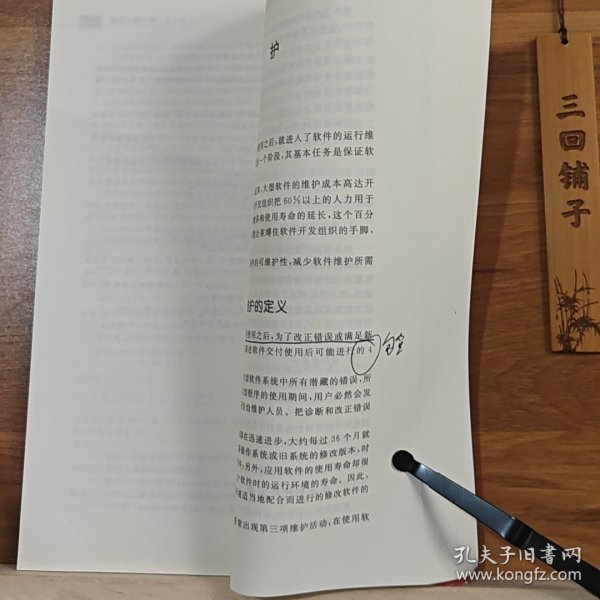 护
之后，就进入了软件的运行维
一个阶段，其基本任务是保证软
大型软件的维护成本高达开
发组织把60%以上的人力用于
多和使用寿命的延长，这个百分
会束缚住软件开发组织的手脚，
的可维护性，减少软件维护所需
护的定义
使用之后，为了改正错误或满足新
述软件交付使用后可能进行的4
型软件系统中所有潜藏的错误，所
程序的使用期间，用户必然会发
给维护人员。把诊断和改正错误
在迅速进步，大约每过36个月就
操作系统或旧系统的修改版本，时
另外，应用软件的使用寿命却很
个软件时的运行环境的寿命。因此，
境适当地配合而进行的修改软件的
常出现第三项维护活动：在使用软
三回铺子
孔夫子旧书网
www.kongfz.com